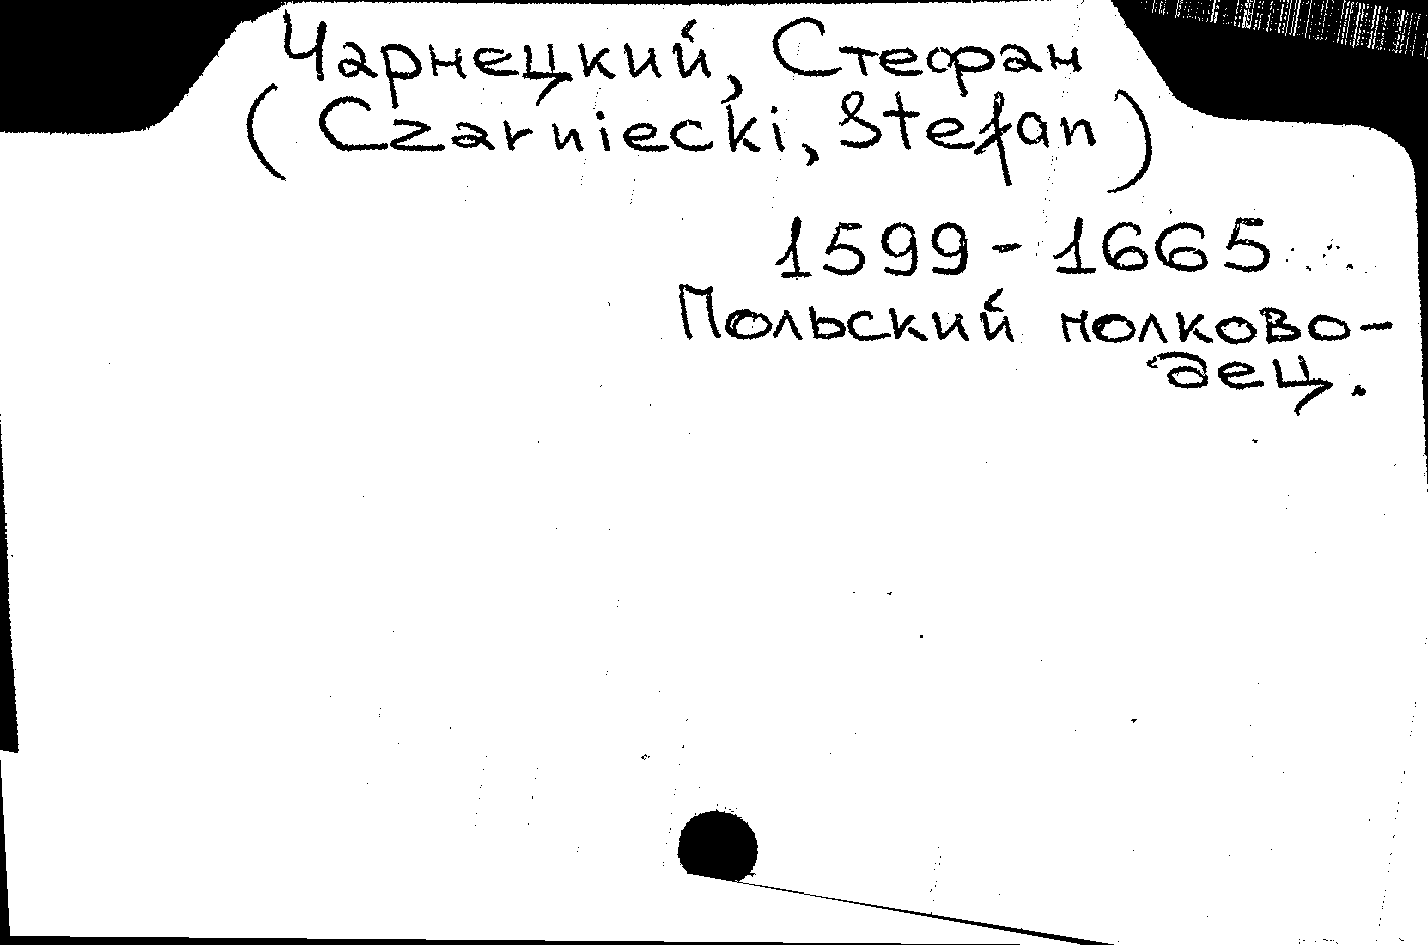 Чарнецкий, Стефан
(Czarniecki, Stefan)
1599-1665
Польский полково-
дец.